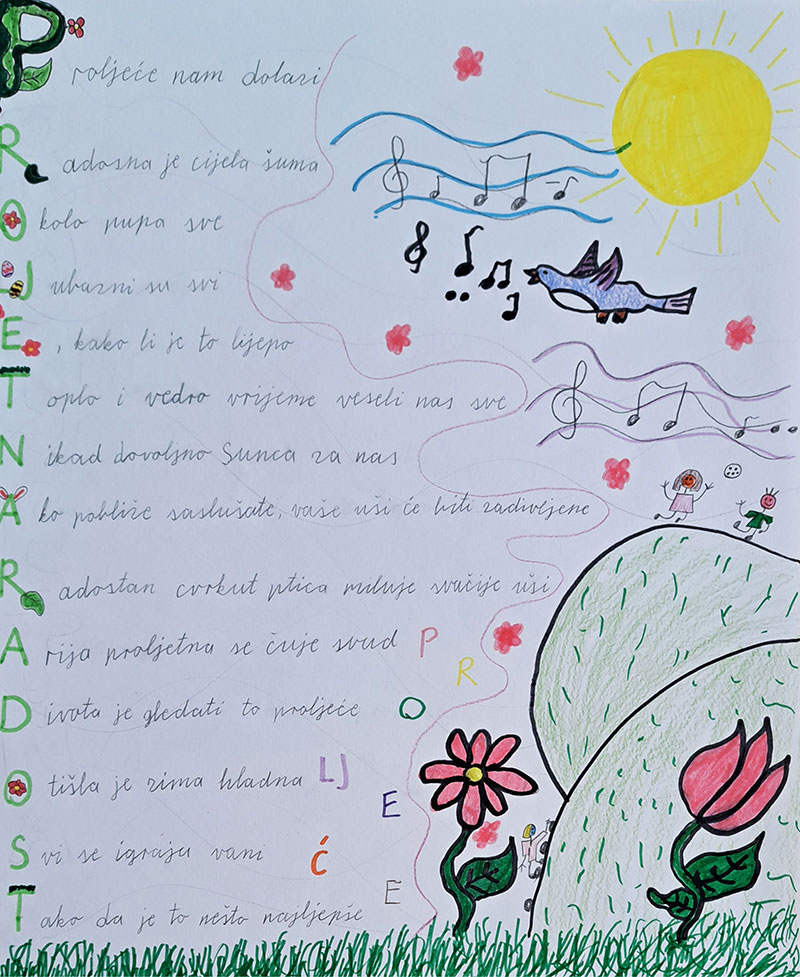 Proljeće nam dolazi
Radosna je cijela šuma
Okolo pupa sve
LJubazni su svi
E, kako li je to lijepo
Toplo i vedro vrijeme veseli nas sve
Nikad dovoljno Sunca za nas
Ako pobliže saslušate, vaše uši će biti zadivljene
Radostan cvrkut ptica miluje svačije uši
Arija proljetna se čuje svud
Divota je gledati to proljeće
Otišla je zima hladna
Svi se igraju vani
Tako da je to nešto najljepše
P
R
O
LJ
E
Ć
E